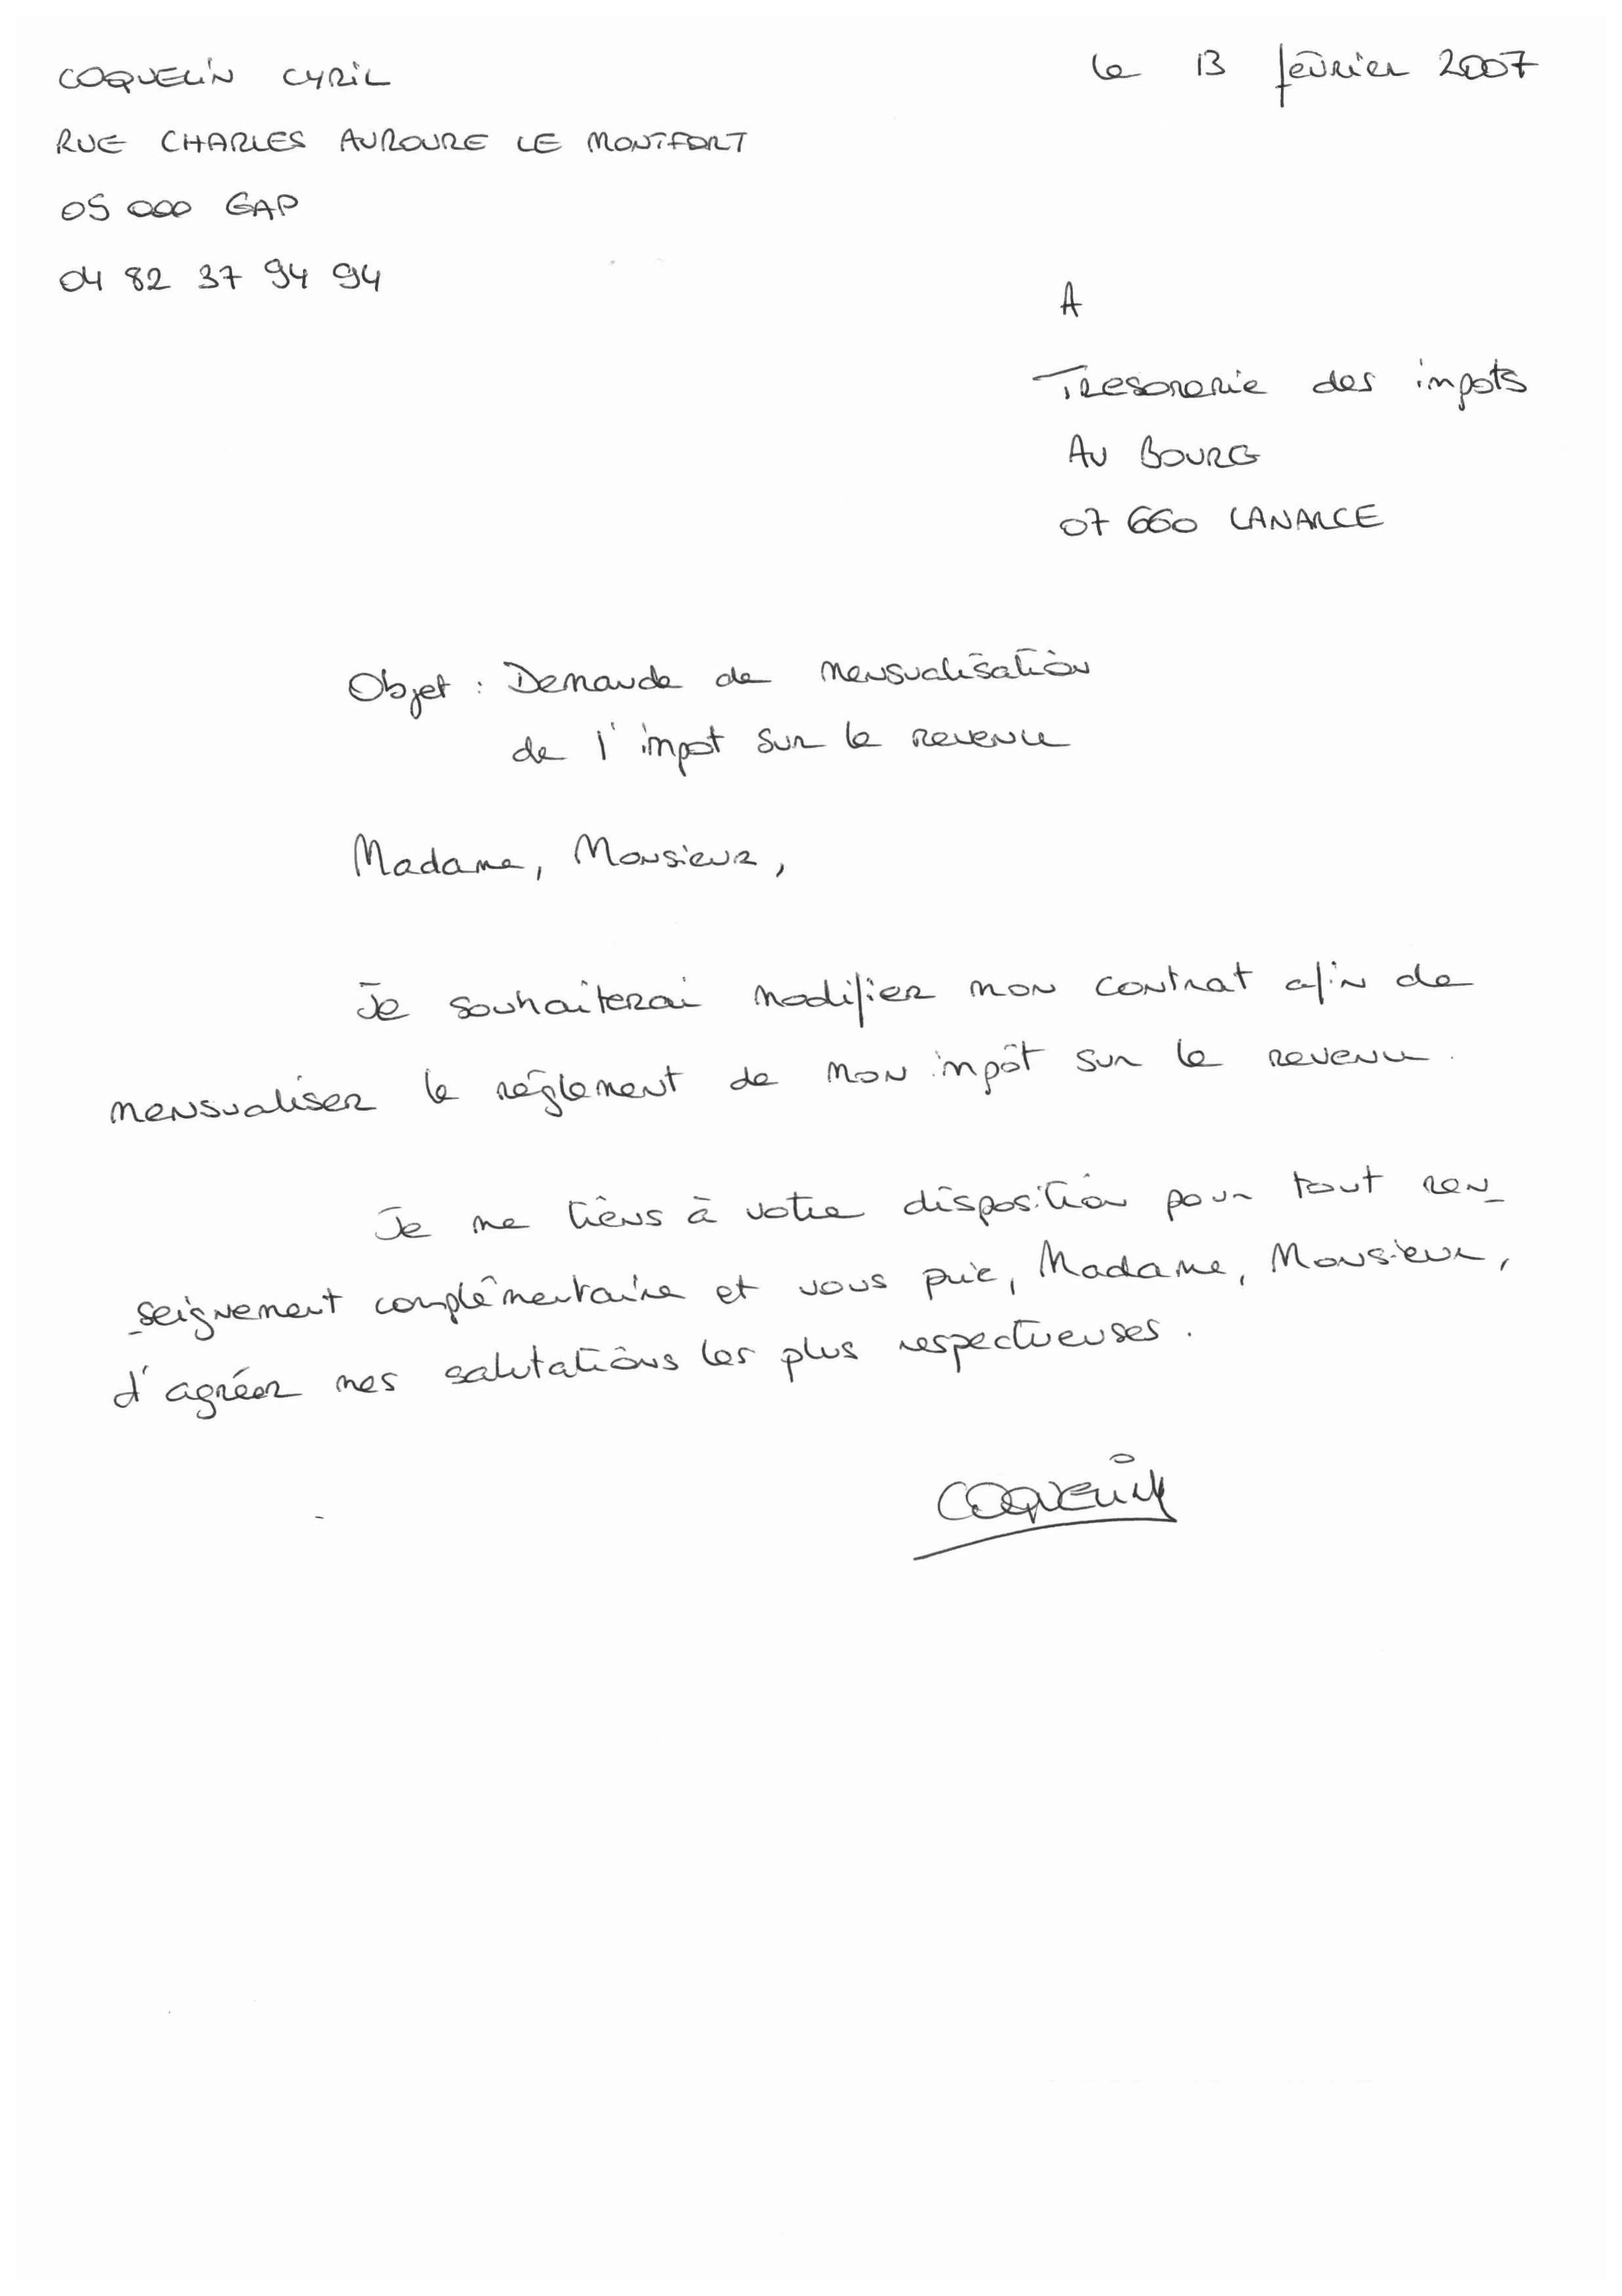 COQUELIN CYRIL
le 13 février 2007
RUE CHARLES AUROURE LE MONTFORT
05 000 GAP
04 82 37 94 94
A
Tresorerie des impots
AU BOURG
07 660 LANARCE
Objet : Demande de mensualisation
de l'impot sur le revenu
Madame, Monsieur,
Je souhaiterai modifier mon contrat afin de
mensualiser le réglement de mon impôt sur le revenu.
Je me tiens à votre disposition pour tout ren_
_seignement complémentaire et vous prie, Madame, Monsieur,
d'agréer mes salutations les plus respectueuses.
COQUELIN